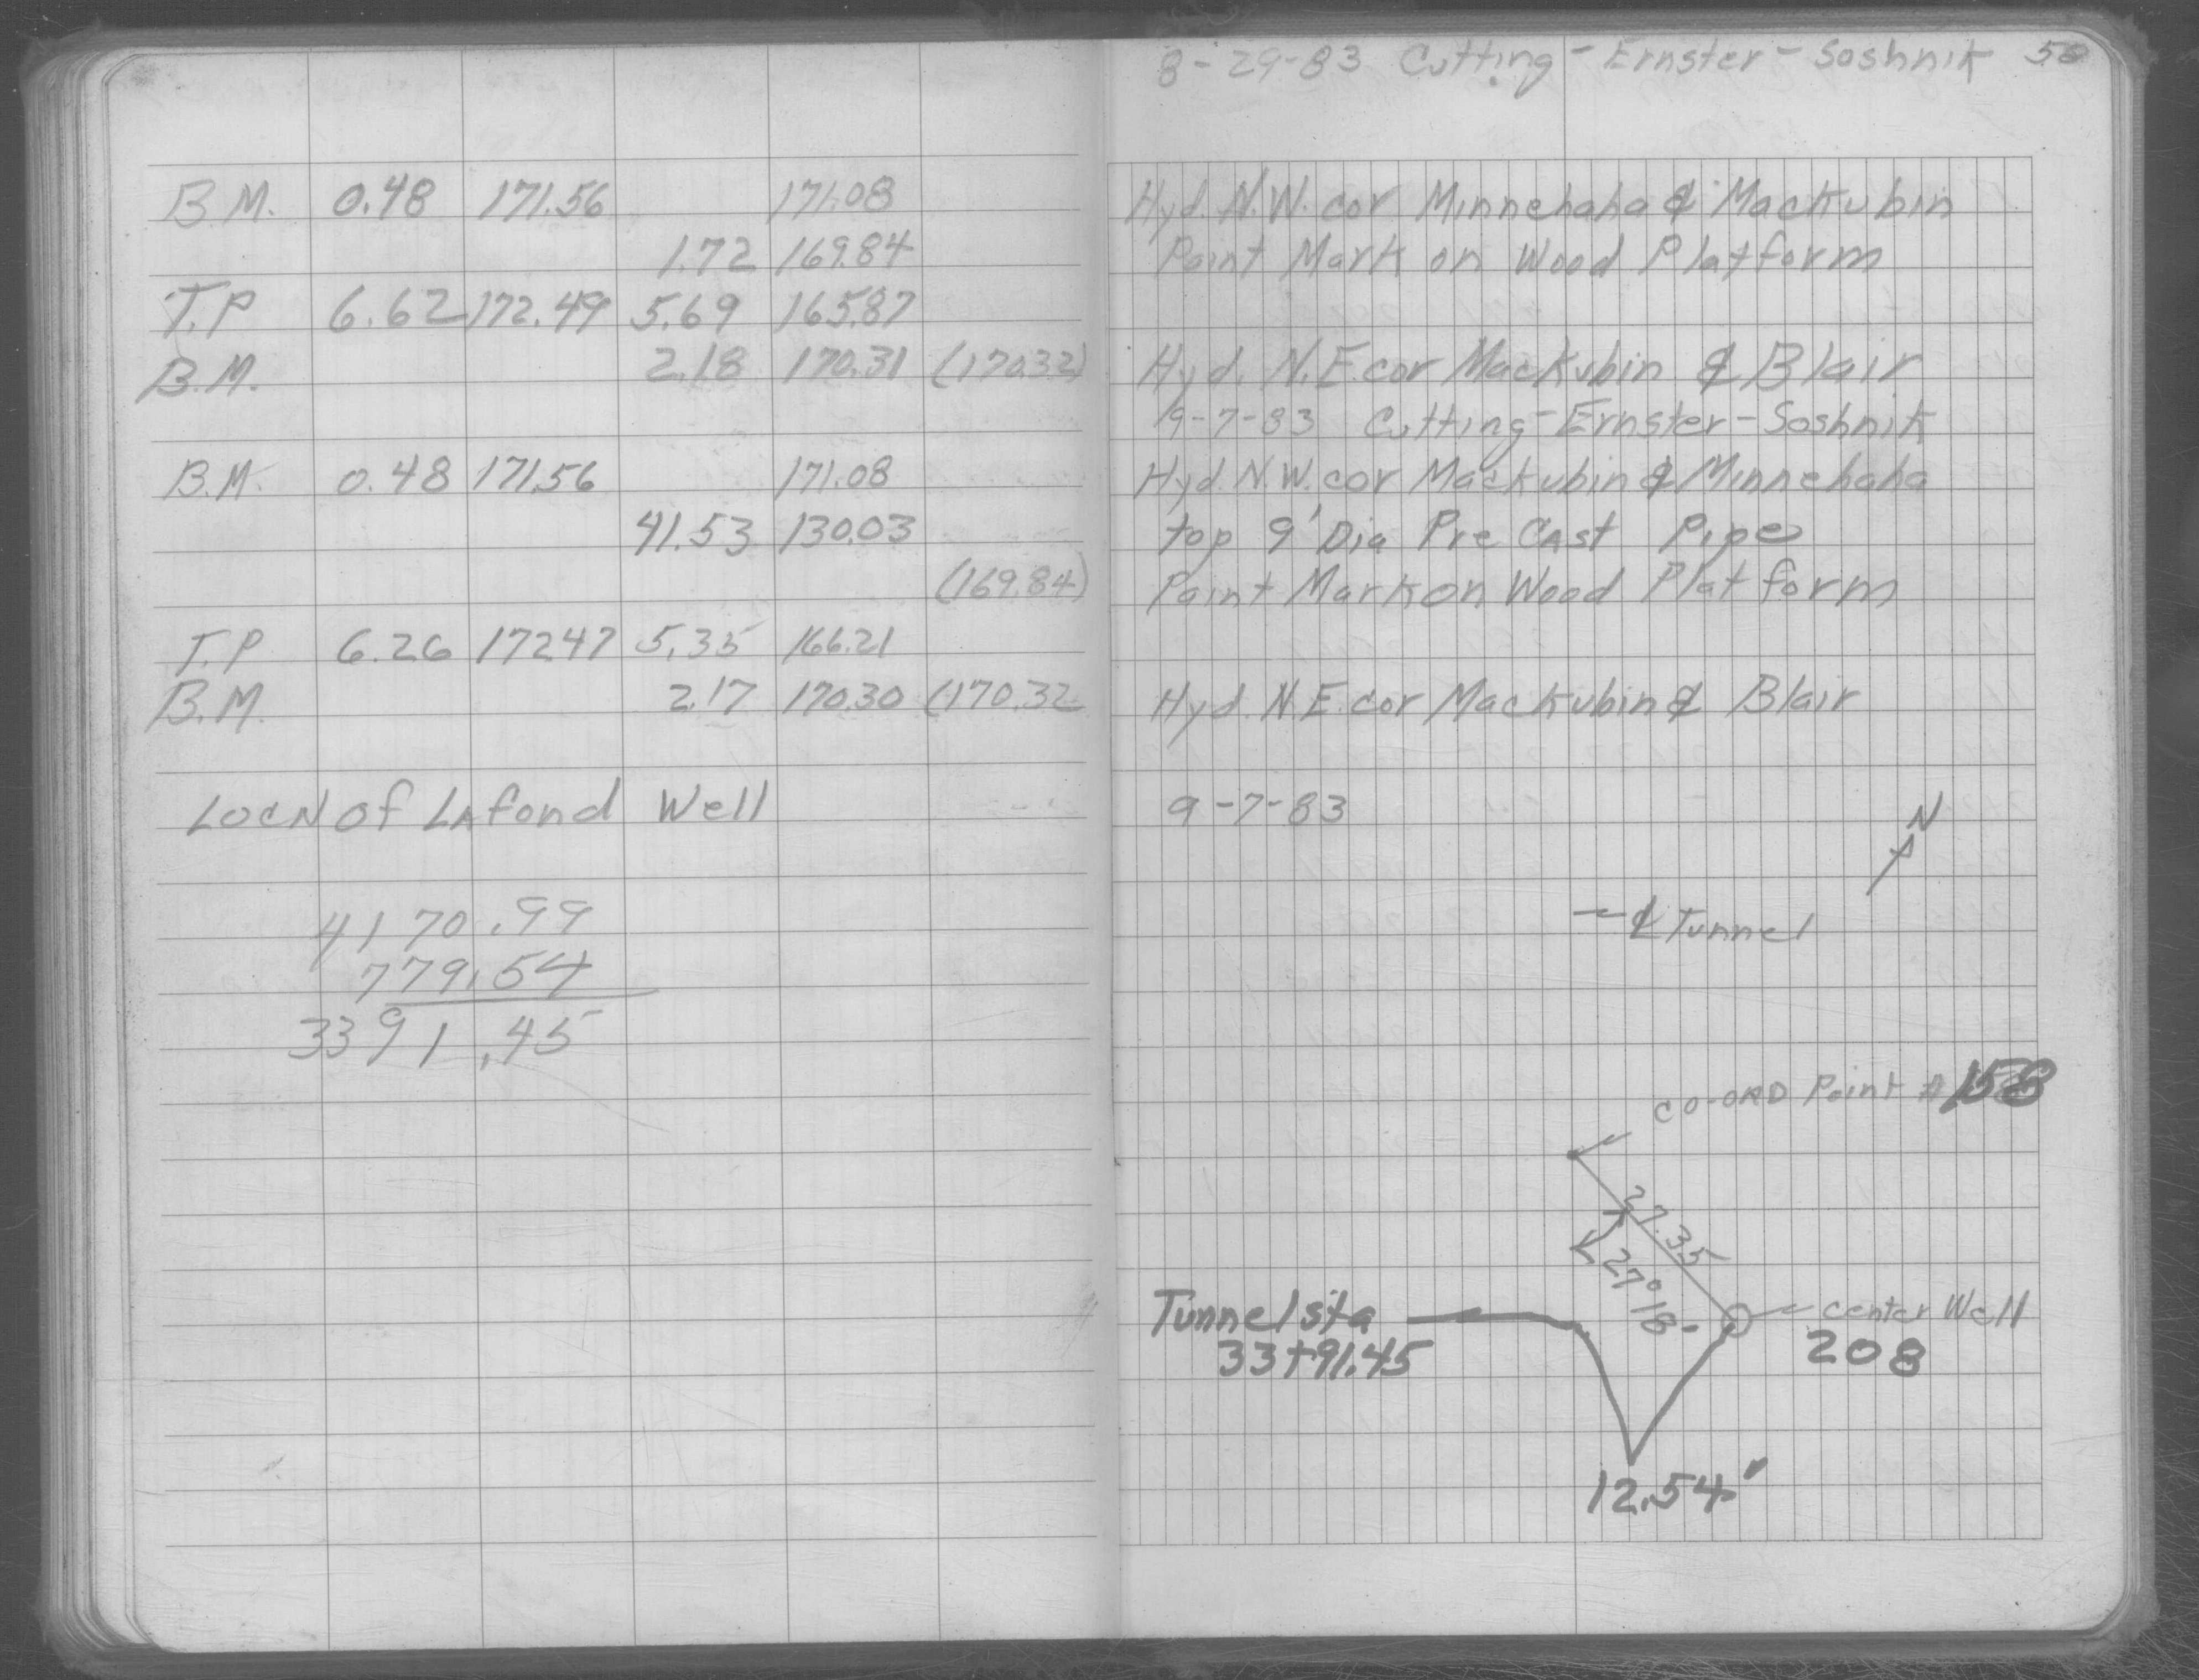 8-29-83 Cutting - Ernster - Soshnik 50
B.M. 0.48 171.56 171.08 Hyd. N.W. cor Minnehaha & Mackubin
1.72 169.84 Paint Mark on Wood Platform
T.P 6.62 172.49 5.69 165.87
B.M. 2.18 170.31 (170.32) Hyd. N.E. cor Mackubin & Blair
9-7-83 Cutting-Ernster-Soshnik
B.M. 0.48 171.56 171.08 Hyd. N.W. cor Mackubin & Minnehaha
41.53 130.03 top 9' Dia Pre CAst Pipe
(169.84) Paint Mark on Wood Platform
T.P 6.26 172.47 5.35 166.21
B.M. 2.17 170.30 (170.32 Hyd. N.E. cor Mackubin & Blair
LocN of LAfond Well 9-7-83
N
4170.99
779.54
3391.45
℄ Tunnel
CO-ORD Point
27.35
27°18-
Tunnel sta
33+91.45
center Well
208
12.54'